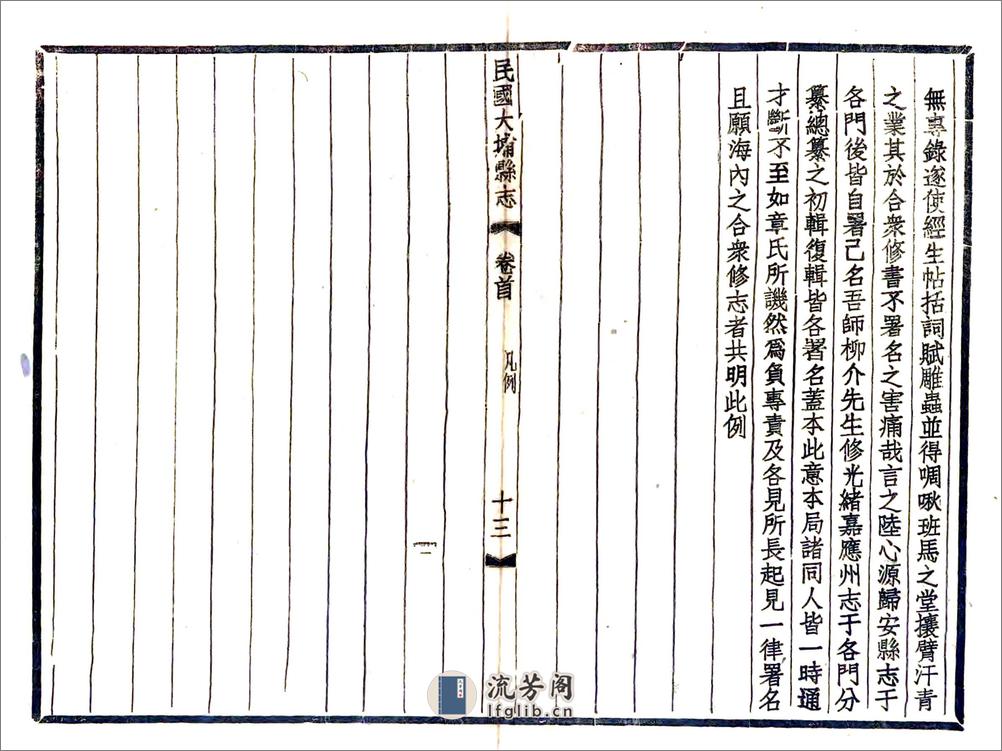 無專錄遂使經生帖括詞賦雕蟲並得啁啾班馬之堂攘臂汗青
之業其於合衆修書不署名之害痛哉言之陸心源歸安縣志于
各門後皆自署己名吾師柳介先生修光緒嘉應州志于各門分
纂總纂之初輯復輯皆各署名蓋本此意本局諸同人皆一時通
才斷不至如章氏所譏然爲負專責及各見所長起見一律署名
且願海內之合衆修志者共明此例
民國大埔縣志 卷首 凡例 十三
流芳阁
lfglib.cn